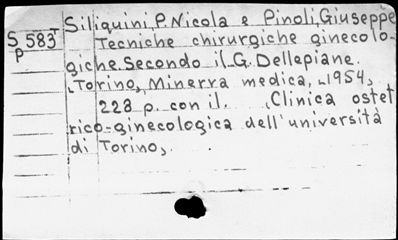 Siliquini, P. Nicola e Pinoli, Giuseppe
S 583
p
Tecniche chirurgiche ginecolo-
giche secondo il G. Dellepiane.
Torino, Minerva medica, 1954,
228 p. con il. Clinica ostet
rico-ginecologica dell'università
di Torino,.